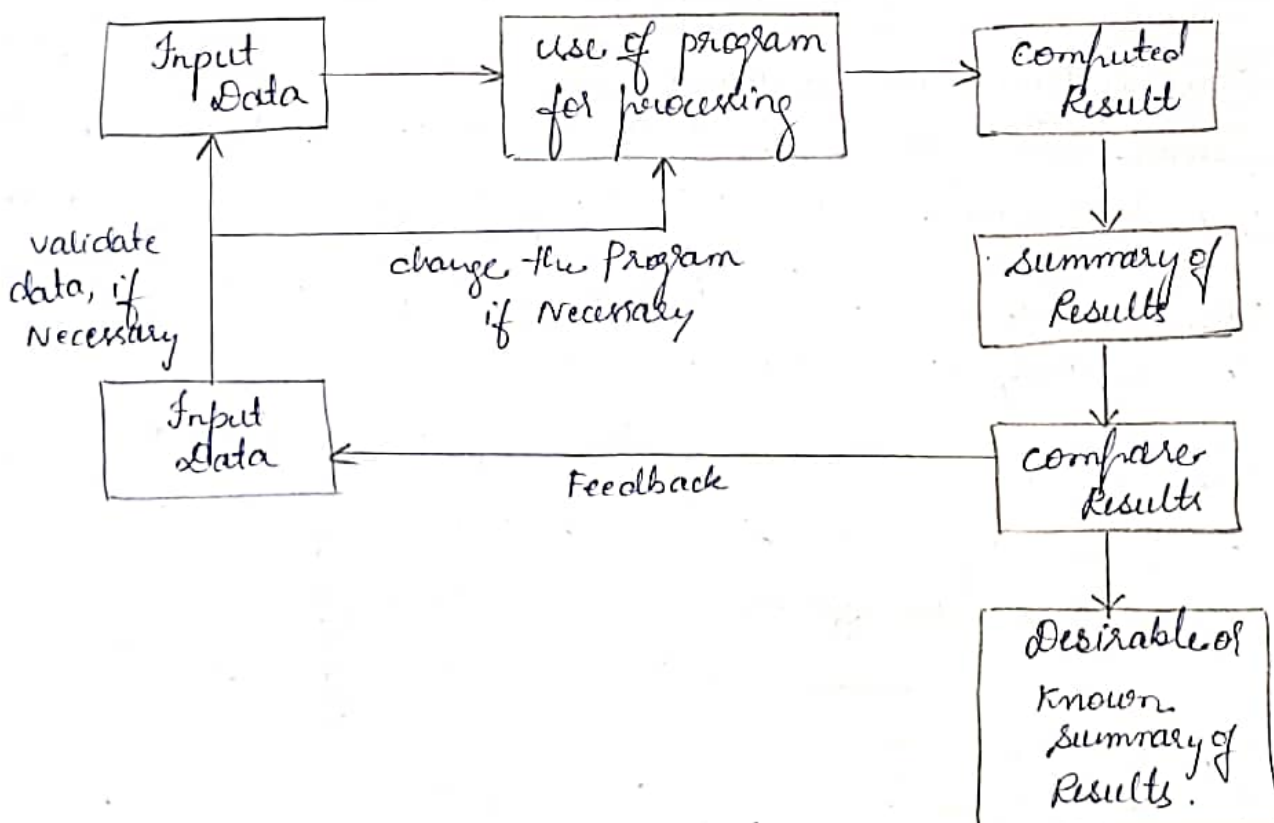 Input
Data
use of program
for processing
computed
Result
validate
data, if
Necessary
change the Program
if Necessary
Summary of
Results
Input
Data
Feedback
compare
Results
Desirable or
Known
Summary of
Results.